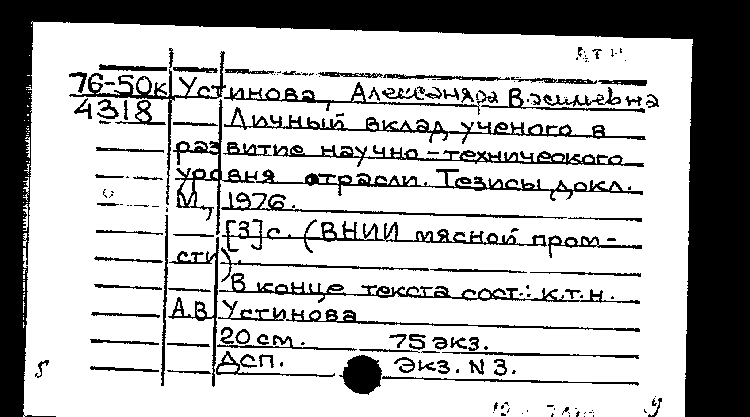 76-50к Устинова, Александра Васильевна
4318 Личный вклад ученого в
развитие научно-технического
уровня отрасли. Тезисы докл.
М., 1976.
[3]с. (ВНИИ мясной пром-
сти).
В конце текста сост.: к.т.н.
А.В. Устинова
20 см. 75 экз.
ДСП. Экз. N 3.